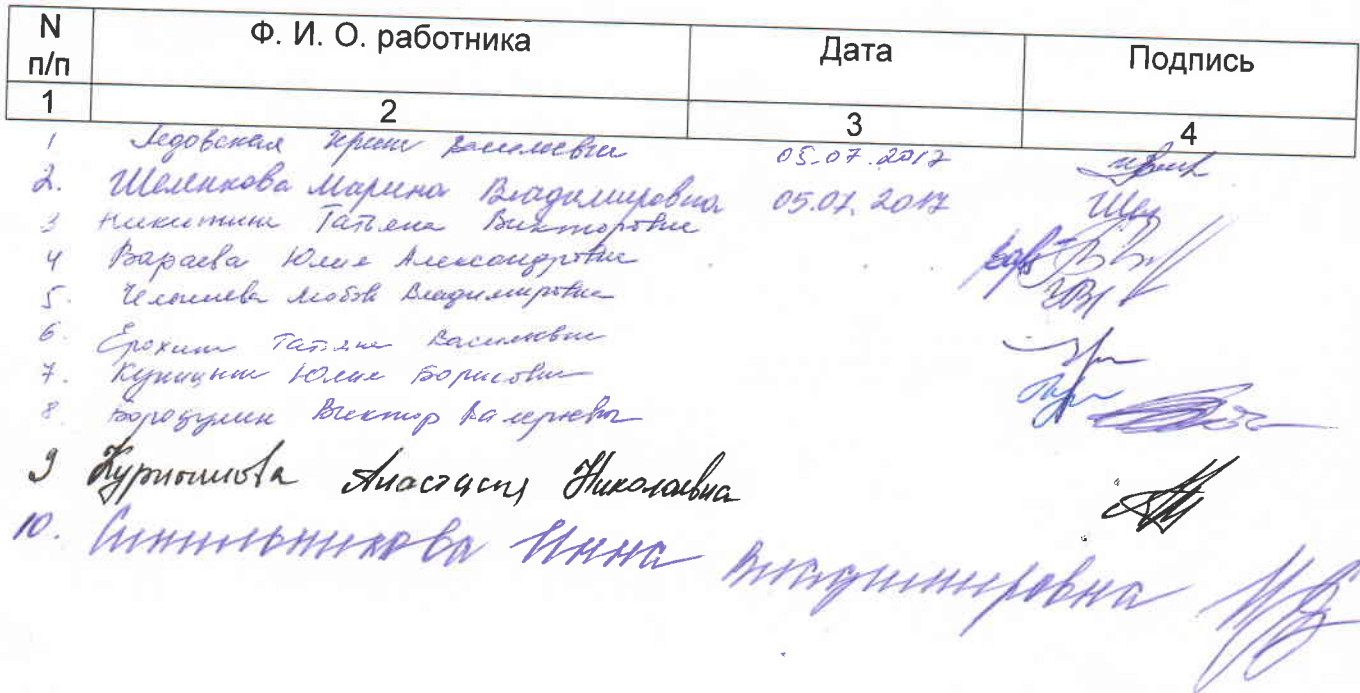 N п/п Ф. И. О. работника Дата Подпись
1 2 3 4
1 Ледовская Ирина Васильевна 05.07.2017
2. Шеленкова Марина Владимировна 05.07.2017
3 Никитина Татьяна Викторовна
4 Вараева Юлия Александровна
5. Любовь Владимировна
6. Ерохина Татьяна Васильевна
7. Куницына Юлия Борисовна
8. Бородулин Виктор Валерьевич
9 Анастасия Николаевна
10. Синильникова Инна Владимировна